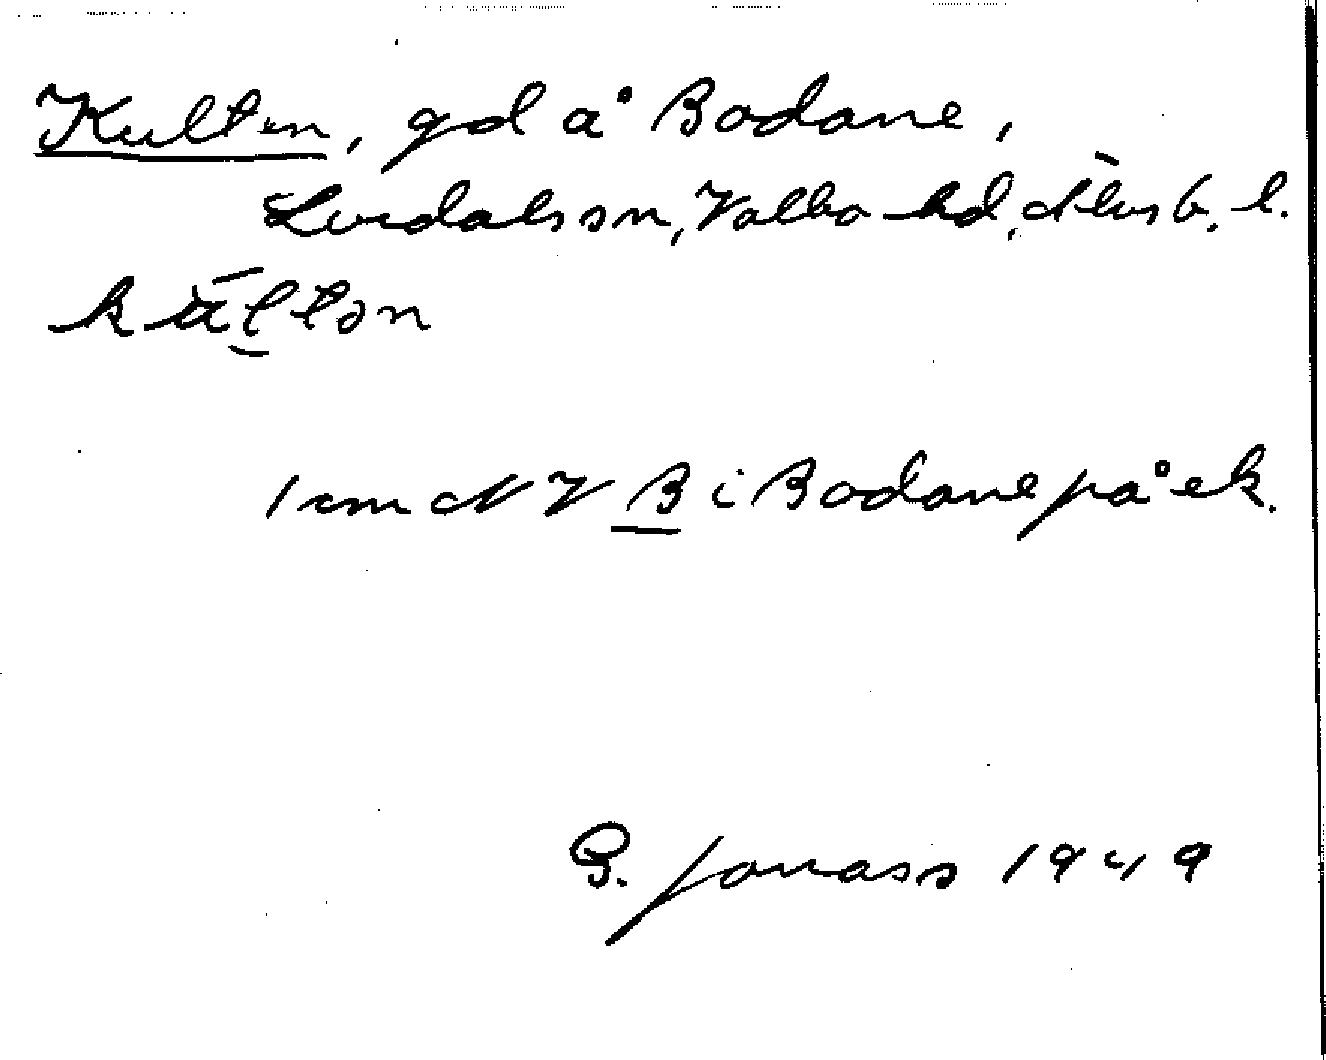 Kulten, gd å Bodane,
Lerdals sn, Valbo hd, Älvsb. l.
kúl̯tən
1 cm NV B i Bodane på ek.
G. Jonass 1949